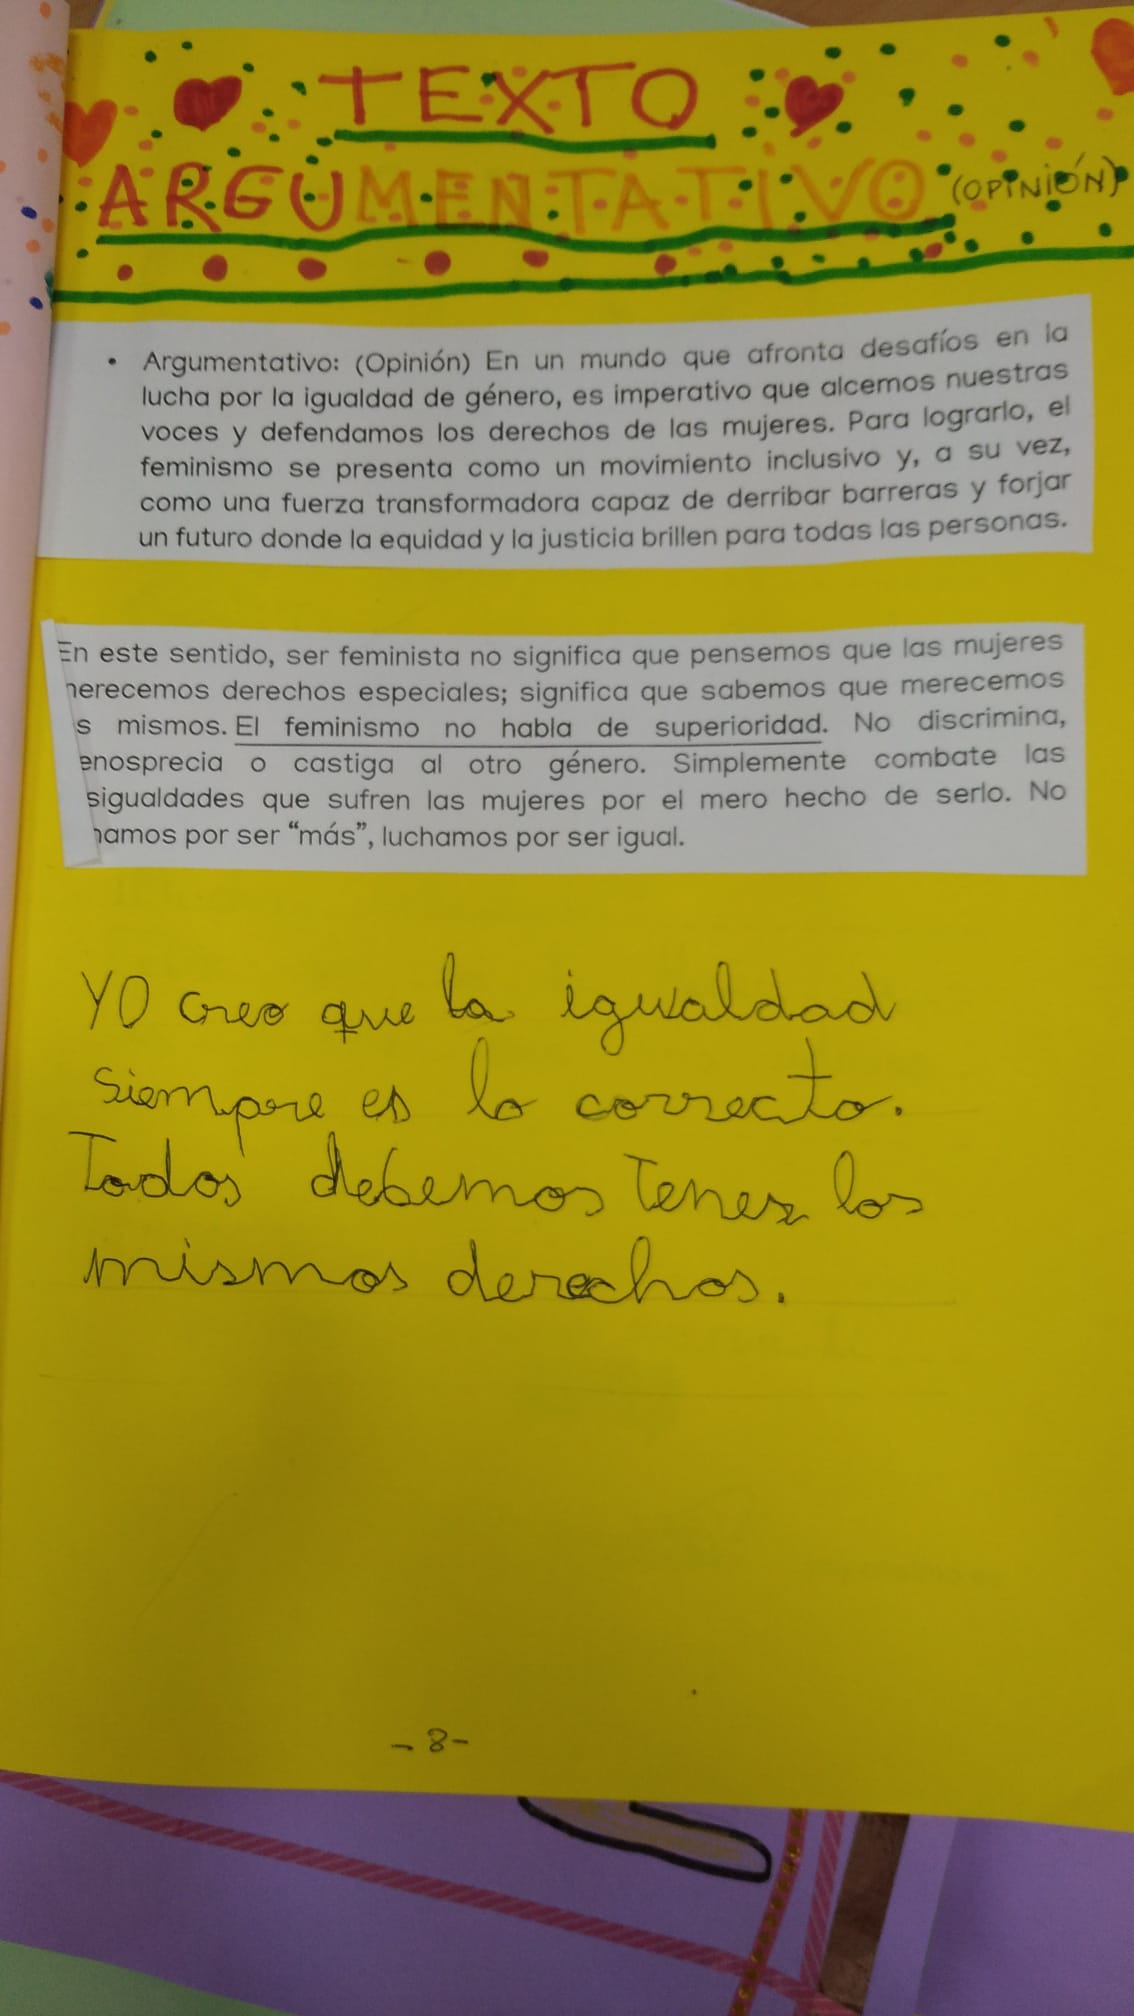 TEXTO
ARGUMENTATIVO (OPINIÓN)
• Argumentativo: (Opinión) En un mundo que afronta desafíos en la
lucha por la igualdad de género, es imperativo que alcemos nuestras
voces y defendamos los derechos de las mujeres. Para lograrlo, el
feminismo se presenta como un movimiento inclusivo y, a su vez,
como una fuerza transformadora capaz de derribar barreras y forjar
un futuro donde la equidad y la justicia brillen para todas las personas.
En este sentido, ser feminista no significa que pensemos que las mujeres
erecemos derechos especiales; significa que sabemos que merecemos
s mismos. El feminismo no habla de superioridad. No discrimina,
enosprecia o castiga al otro género. Simplemente combate las
sigualdades que sufren las mujeres por el mero hecho de serlo. No
hamos por ser “más”, luchamos por ser igual.
YO creo que la igualdad
siempre es lo correcto.
Todos debemos tener los
mismos derechos.
-8-